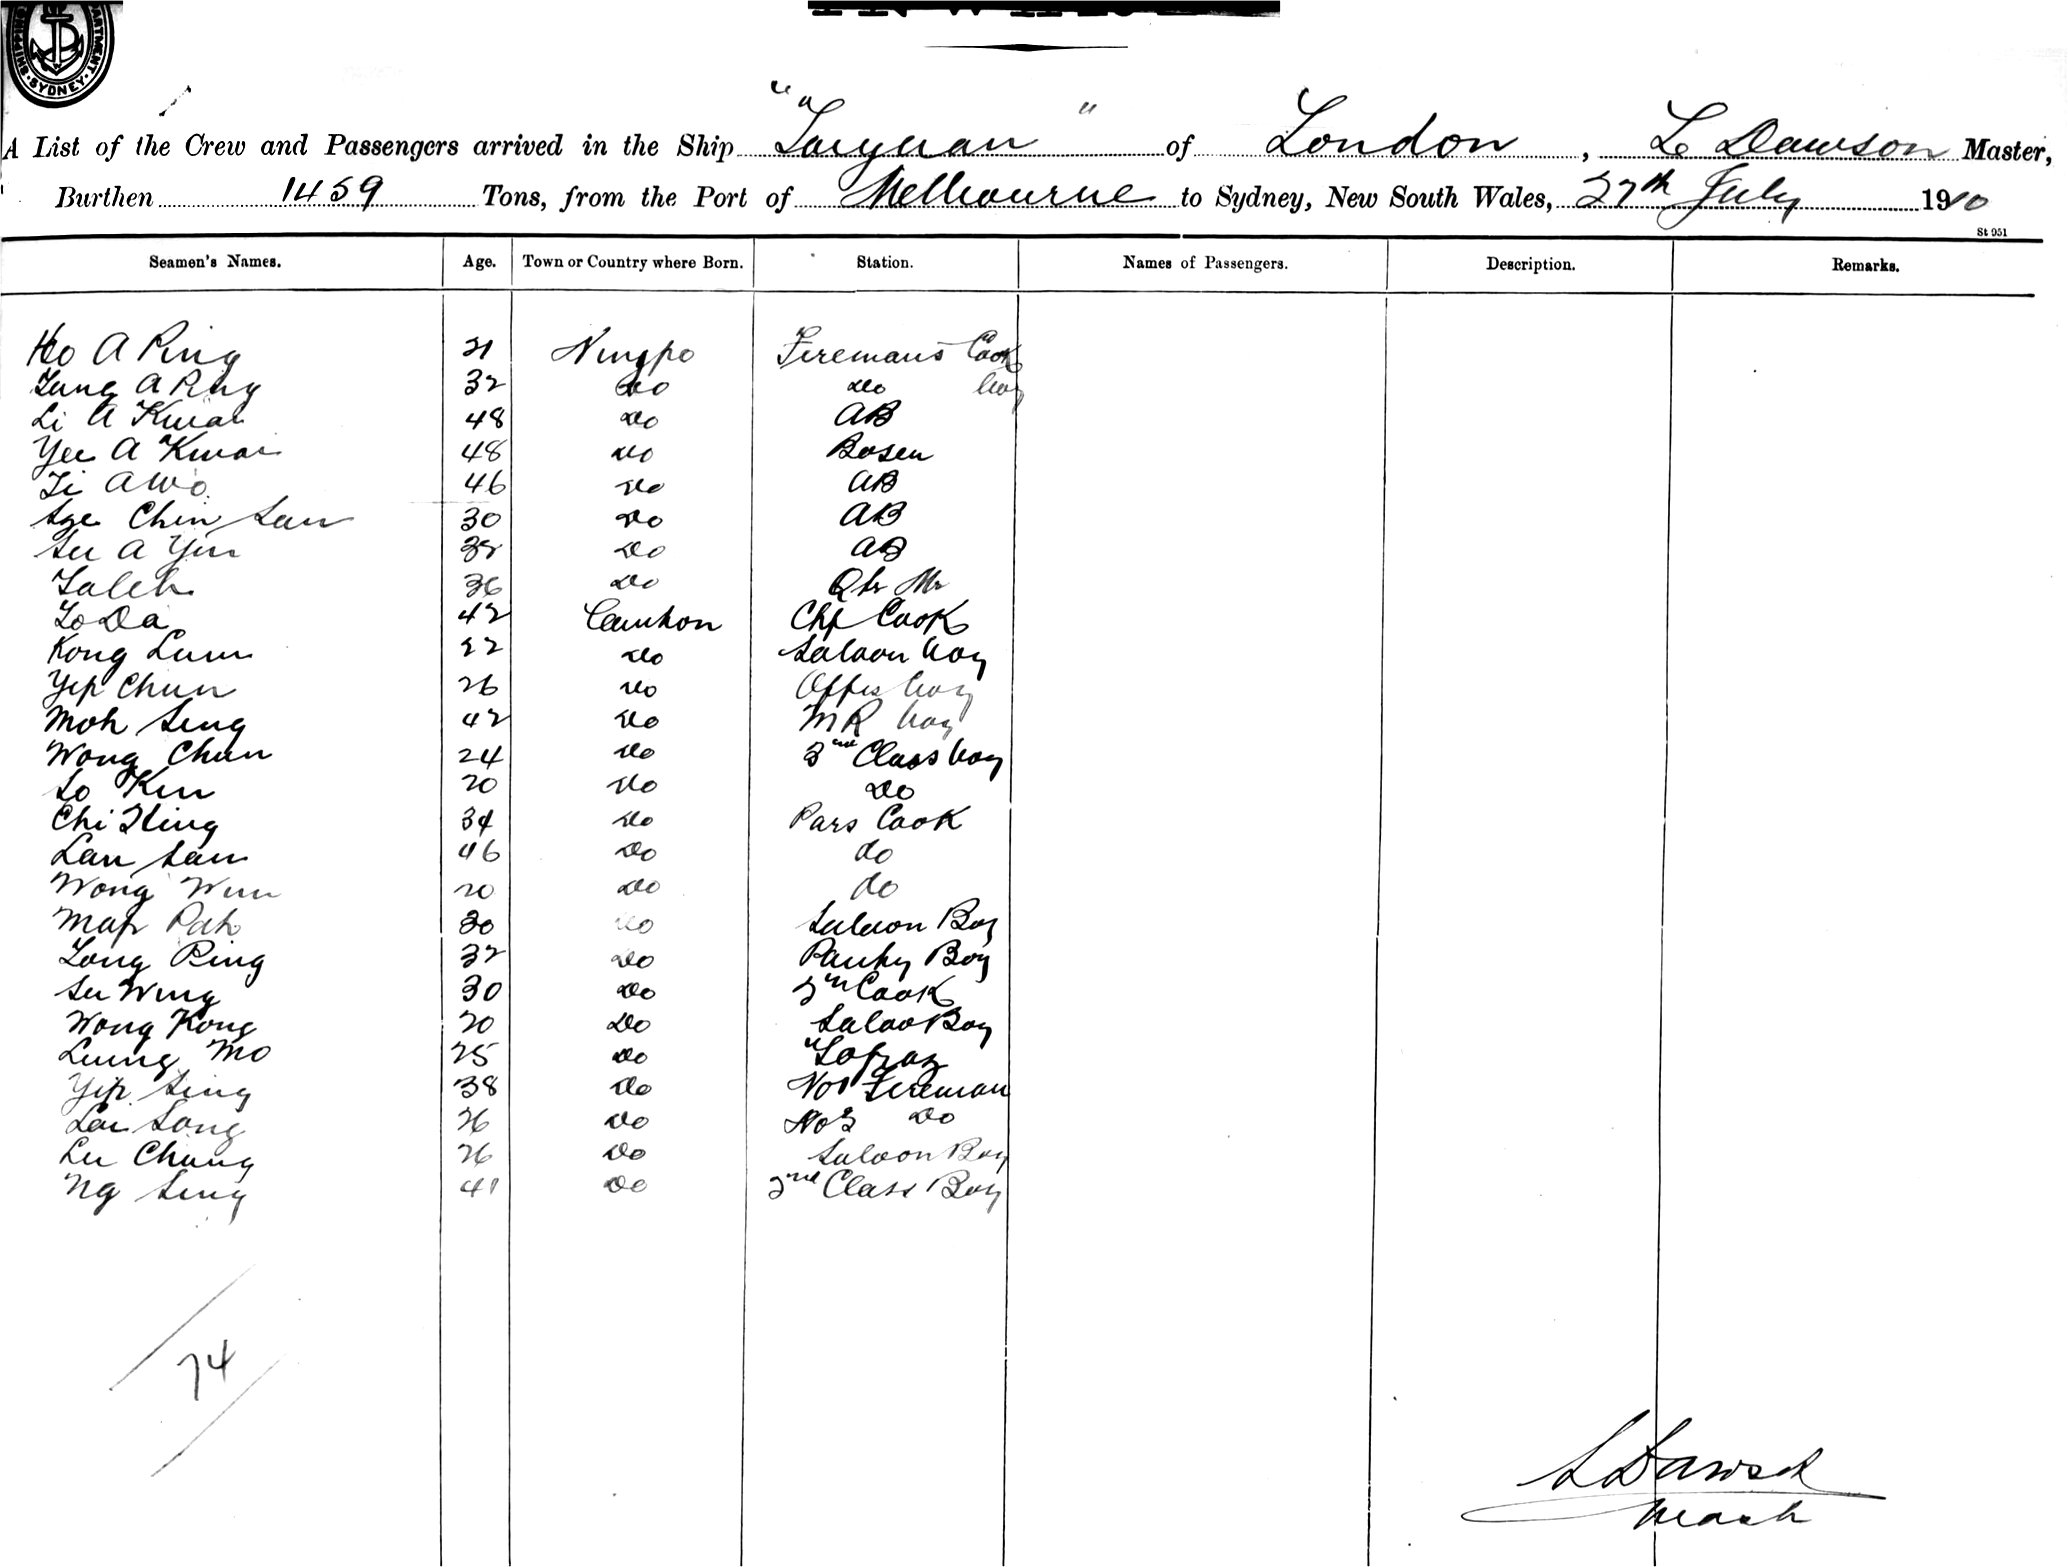 SHIPPING DEPARTMENT SYDNEY
A List of the Crew and Passengers arrived in the Ship "Taiyuan" of London, L Dawson Master,
Burthen 1459 Tons, from the Port of Melbourne to Sydney, New South Wales, 27th July 1910
St 951
Seamen's Names. Age. Town or Country where Born. Station. Names of Passengers. Description. Remarks.
Ho A Ping 21 Ningpo Firemans Cook
A Ping 32 Do Do boy
Li A Kwai 48 Do AB
Yee A Kwai 48 Do Bosen
A Wo 46 Do AB
Chin San 30 Do AB
A Yin Do AB
Saleh 36 Do Qtr Mr
42 Canton Chf Cook
Kong Lum 22 Do Saloon boy
Yip Chun 26 Do Offis boy
Moh Sing 42 Do MR boy
Wong Chun 24 Do Class boy
So Kin 20 Do Do
Chi Hing 34 Do Pars Cook
Lan San 46 Do do
Wong Wun 20 Do do
Map Pak 30 Do Saloon Boy
Ping 32 Do Pantry Boy
Su Wing 30 Do Cook
Wong Kong 20 Do Saloo Boy
Leung Mo 25 Do
Yip Sing 38 Do No 1 Fireman
Lai Song 26 Do No 2 Do
Lee Chung 26 Do Saloon Boy
Ng Sing 41 Do 2nd Class Boy
74
L Dawson
Master